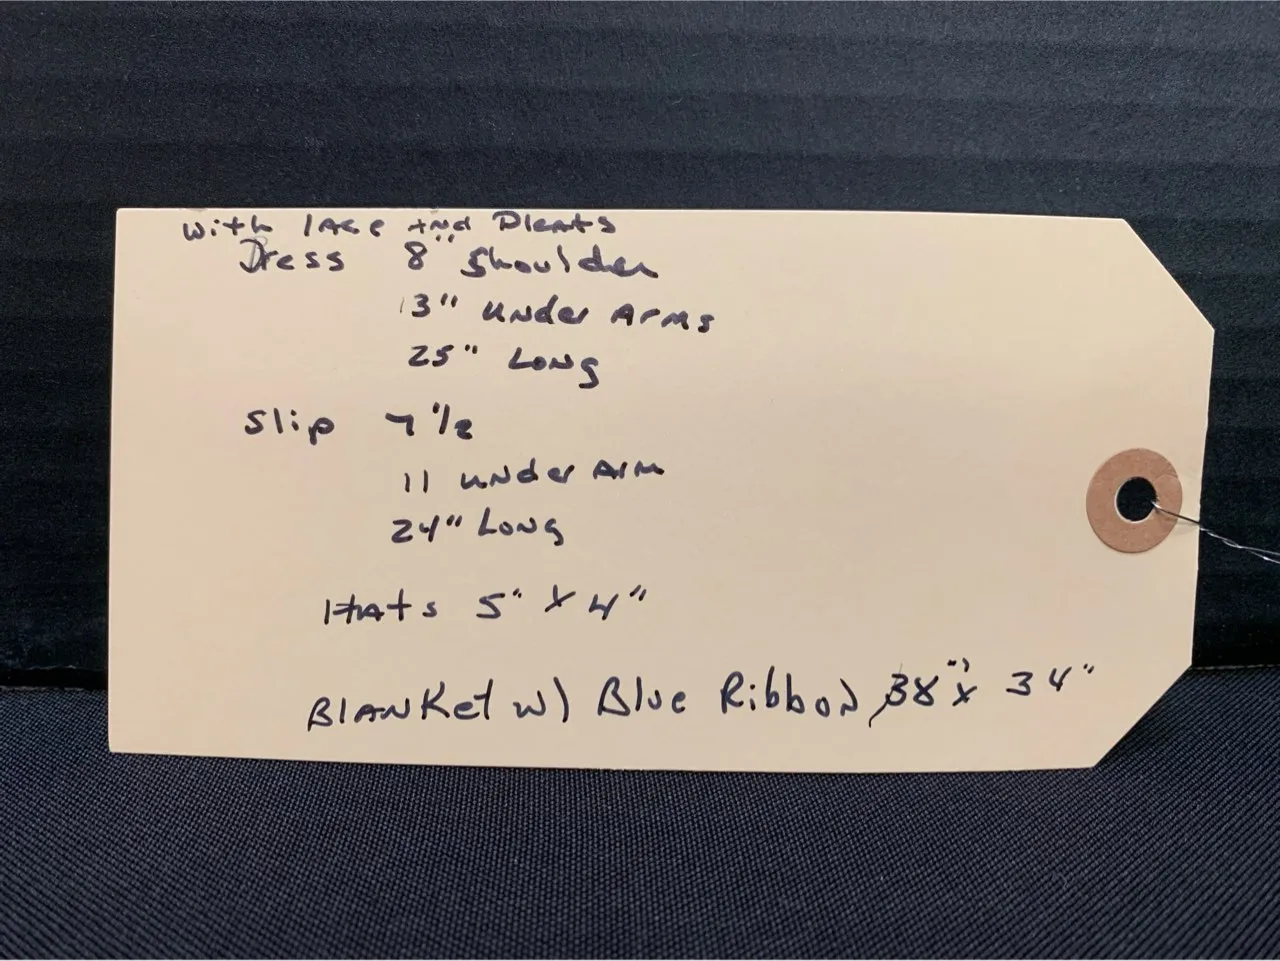 with lace and Pleats
Dress 8" Shoulder
13" under Arms
25" Long
Slip 7 1/2
11 under Arm
24" Long
Hats 5" x 4"
Blanket w/ Blue Ribbon 38" x 34"